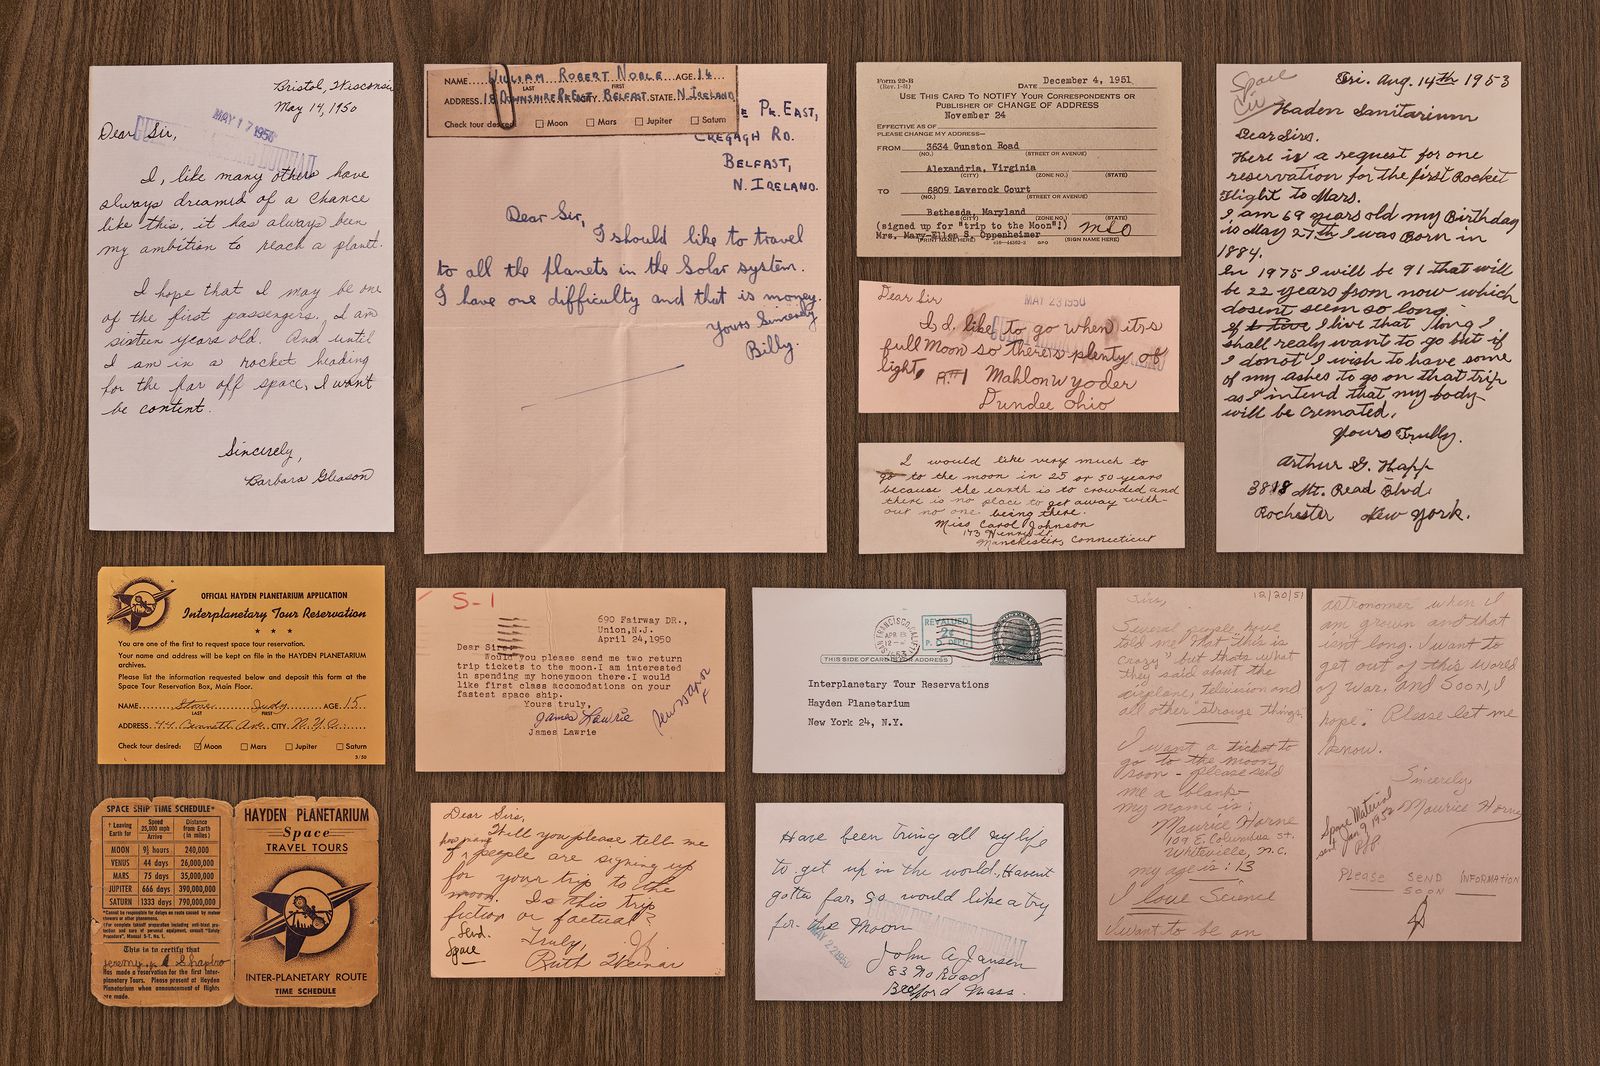 Bristol, Wisconsin
May 14, 1950
MAY 17 1950
Dear Sir,
I, like many others have
always dreamed of a chance
like this, it has always been
my ambition to reach a planet.
I hope that I may be one
of the first passengers. I am
sixteen years old. And until
I am in a rocket heading
for the far off space, I want
be content.
Sincerely,
Barbara Gleason
NAME WILLIAM ROBERT NOBLE AGE 14
LAST FIRST
ADDRESS 18 DOWNSHIRE PK EAST CITY BELFAST STATE N. IRELAND
Check tour desired: Moon Mars Jupiter Saturn
E PK. EAST,
CREGAGH RD.
BELFAST,
N. IRELAND.
Dear Sir,
I should like to travel
to all the planets in the Solar system.
I have one difficulty and that is money.
Yours Sincerely
Billy.
Form 22-B
(Rev. 1-51)
December 4, 1951
DATE
USE THIS CARD TO NOTIFY YOUR CORRESPONDENTS OR
PUBLISHER OF CHANGE OF ADDRESS
November 24
EFFECTIVE AS OF
PLEASE CHANGE MY ADDRESS—
FROM 3634 Gunston Road
(NO.) (STREET OR AVENUE)
Alexandria, Virginia
(CITY) (ZONE NO.) (STATE)
TO 6809 Laverock Court
(NO.) (STREET OR AVENUE)
Bethesda, Maryland
(CITY) (ZONE NO.) (STATE)
(signed up for "trip to the Moon"!) MEO
Mrs. Mary-Ellen S. Oppenheimer
(PRINT NAME HERE) c16-44362-2 GPO (SIGN NAME HERE)
Dear Sir
MAY 23 1950
I'd, like to go when its
full Moon so there's plenty of
light. R.#1 Mahlon W yoder
Dundee Ohio
I would like very much to
go to the moon in 25 or 50 years
because the earth is to crowded and
there is no place to get away with-
out no one being there.
Miss Carol Johnson
173 Henry St.
Manchester, Connecticut
Space
Fri. Aug. 14th 1953
Haden Sanitarium
Dear Sirs.
Here is a request for one
reservation for the first Rocket
Flight to Mars.
I am 69 years old my Birthday
is May 27th I was Born in
1884.
In 1975 I will be 91 that will
be 22 years from now which
dosent seem so long
if I live that long I
shall realy want to go but if
I do not I wish to have some
of my ashes to go on that trip
as I intend that my body
will be cremated.
Yours Trully.
Arthur G. Happ
3818 Mt. Read Blvd.
Rochester New York.
OFFICIAL HAYDEN PLANETARIUM APPLICATION
Interplanetary Tour Reservation
★ ★ ★
You are one of the first to request space tour reservation.
Your name and address will be kept on file in the HAYDEN PLANETARIUM
archives.
Please list the information requested below and deposit this form at the
Space Tour Reservation Box, Main Floor.
NAME Stone Judy AGE 15
LAST FIRST
ADDRESS 44 Bennett Ave. CITY N.Y.C.
Check tour desired: ☑ Moon ☐ Mars ☐ Jupiter ☐ Saturn
3/50
S-1
690 Fairway DR.,
Union,N.J.
April 24,1950
Dear Sir:
Would you please send me two return
trip tickets to the moon.I am interested
in spending my honeymoon there.I would
like first class accomodations on your
fastest space ship.
Yours truly,
James Lawrie
James Lawrie
SAN FRANCISCO, CALIF.
1953
REVALUED
2¢
P. O. DEPT.
THIS SIDE OF CARD IS FOR ADDRESS
Interplanetary Tour Reservations
Hayden Planetarium
New York 24, N.Y.
Sirs, 12/20/51
Several people have
told me that "this is
crazy" but thats what
they said about the
airplane, television and
all other "strange things"
I want a ticket to
go to the moon
soon - please send
me a blank
my name is:
Maurice Horne
109 E. Columbus St.
Whiteville, N.C.
my age is: 13
I love Science
I want to be an
astronomer when I
am grown and that
isnt long. I want to
get out of this world
of war, and Soon, I
hope. Please let me
know.
Sincerely
Maurice Horne
Space Material
sent Jan 9, 1952
PLEASE SEND INFORMATION
SOON
SPACE SHIP TIME SCHEDULE*
† Leaving Earth for Speed 25,000 mph Arrive Distance from Earth (in miles)
MOON 9½ hours 240,000
VENUS 44 days 26,000,000
MARS 75 days 35,000,000
JUPITER 666 days 390,000,000
SATURN 1333 days 790,000,000
*Cannot be responsible for delays en route caused by meteor
showers or other phenomena.
†For complete takeoff preparation including anti-blast pro-
tection and care of personal equipment, consult "Safety
Procedure", Manual S-T. No. 1.
This is to certify that
Jeremy Shapiro
Has made a reservation for the first Inter-
planetary Tours. Please present at Hayden
Planetarium when announcement of flights
are made.
HAYDEN PLANETARIUM
Space
TRAVEL TOURS
INTER-PLANETARY ROUTE
TIME SCHEDULE
Dear Sirs,
Will you please tell me
how many people are signing up
for your trip to the
moon. Is this trip
fiction or factual?
Truly,
Ruth Weinar
Send.
Space
Have been trying all my life
to get up in the world, Havent
gotten far, so would like a try
for the Moon
MAY 22 1950
John A Jansen
83 No Road
Bedford Mass.